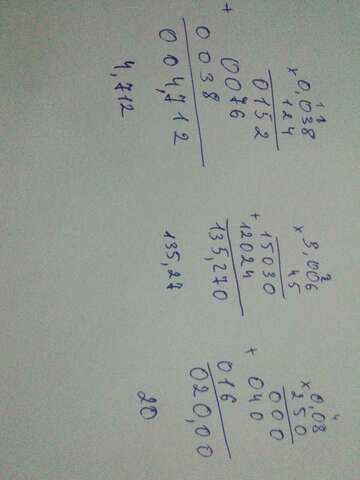 × 0,038
124
0152
0076
+
0038
004,712
4,712
2
× 3,006
45
15030
+
12024
135,270
135,27
4
× 0,08
250
000
040
+
016
020,00
20